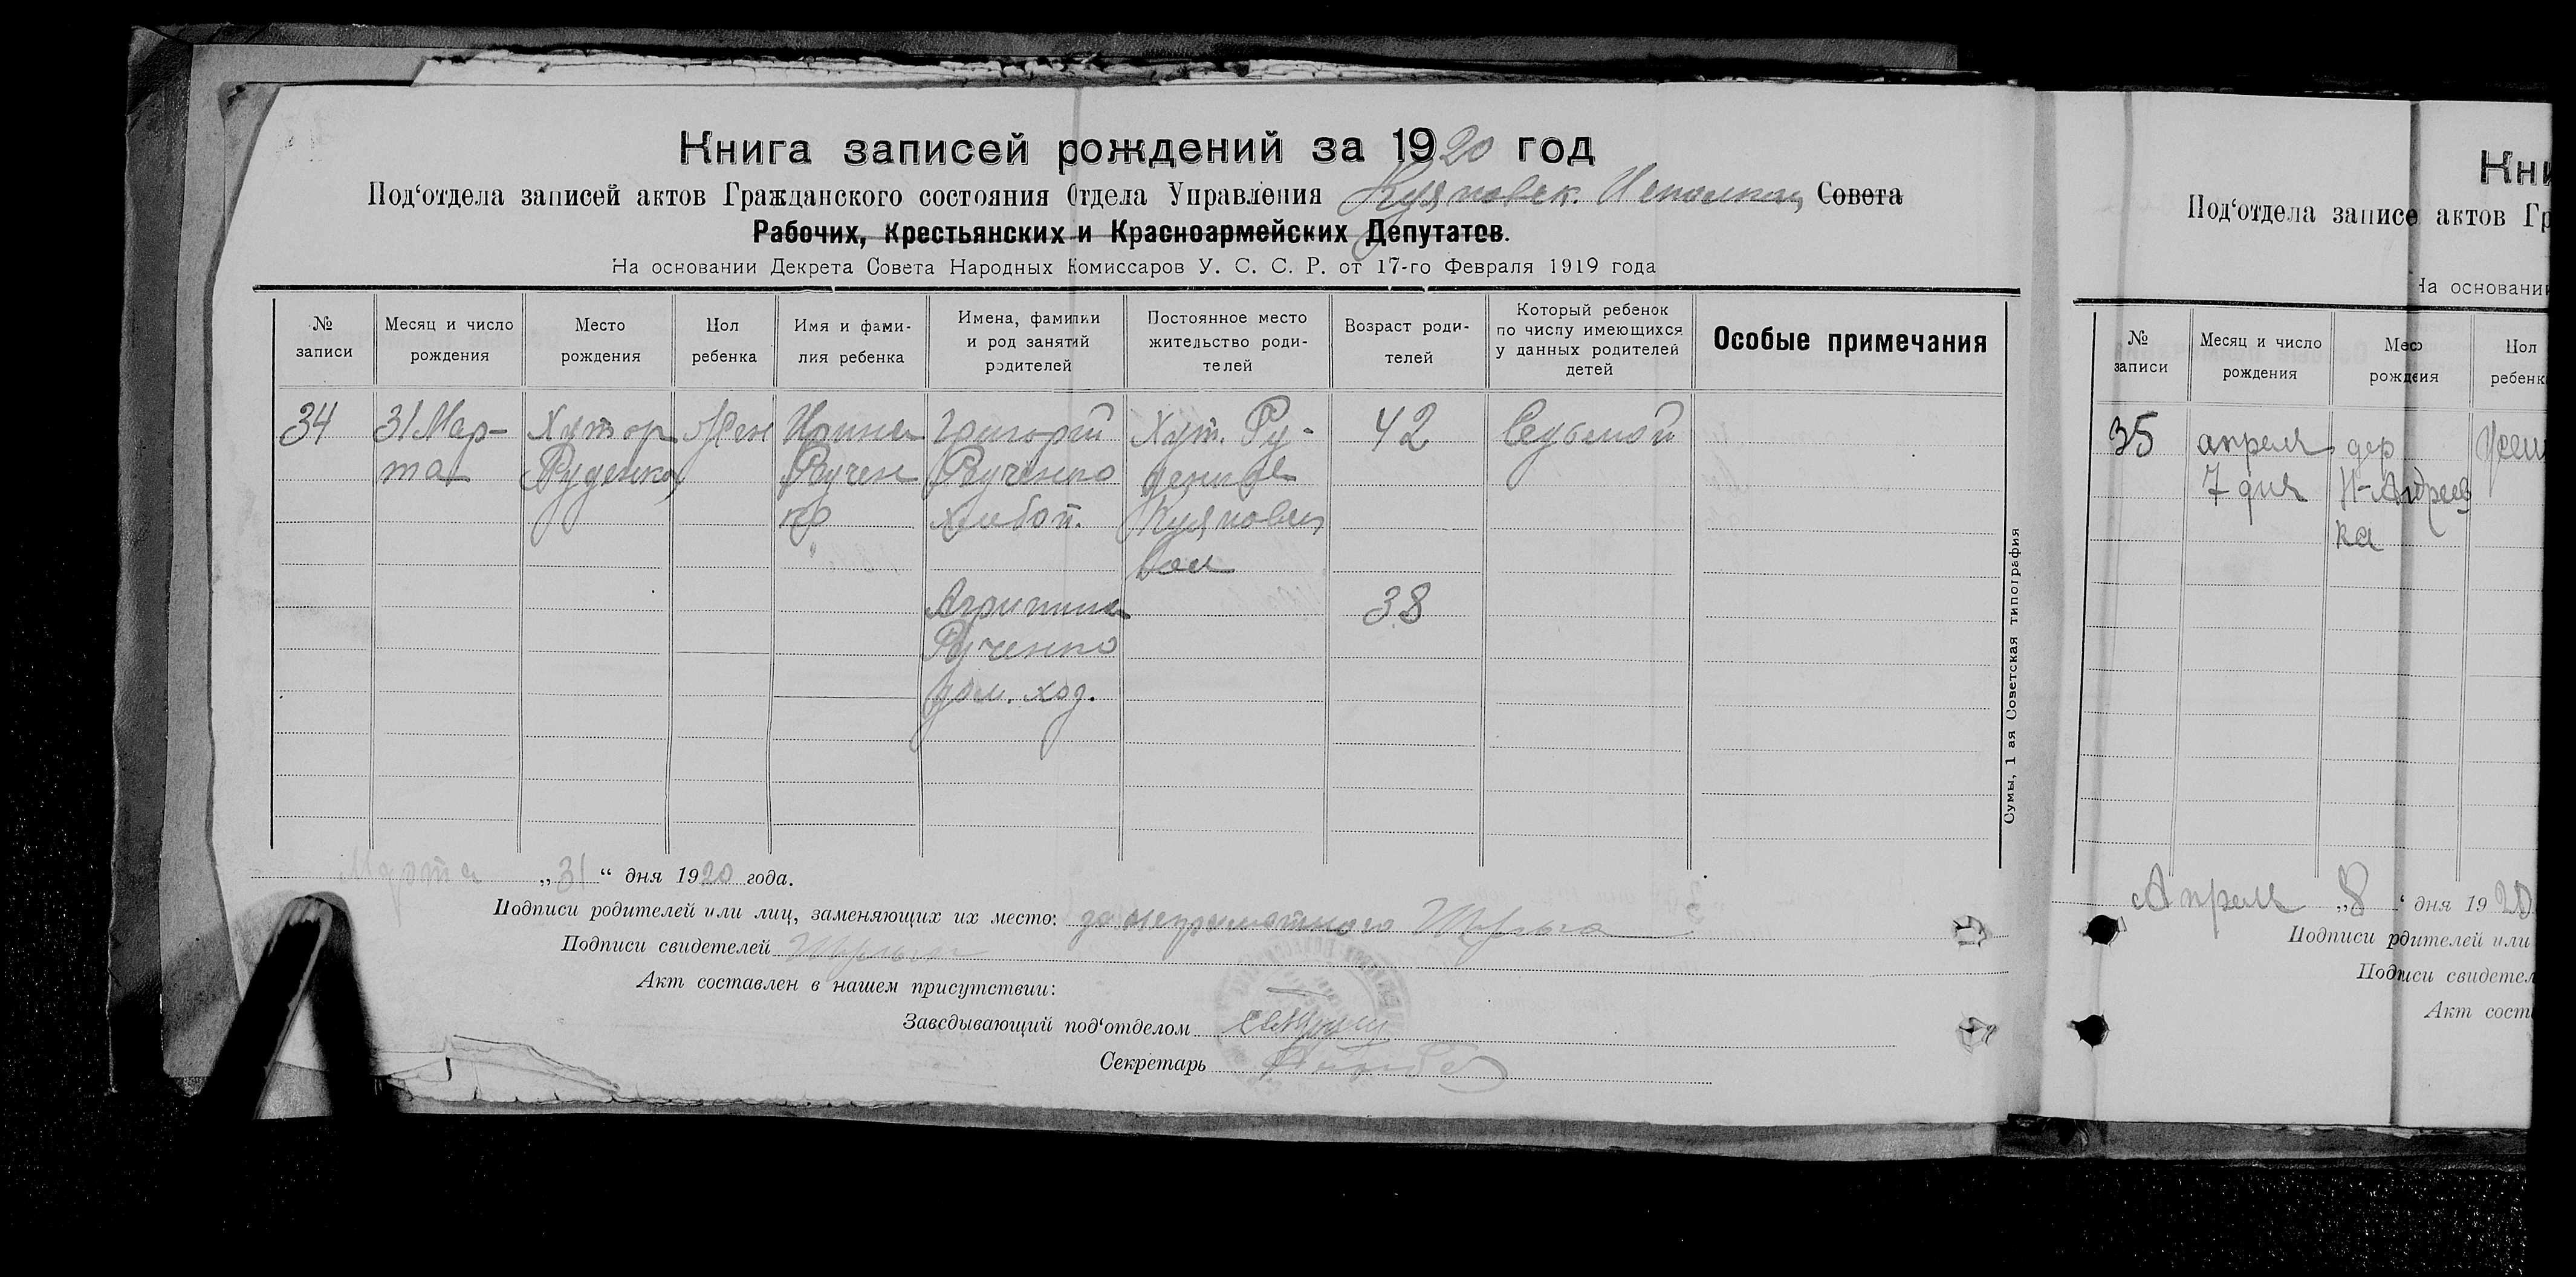 Книга записей рождений за 1920 год
Под‘отдела записей актов Гражданского состояния Отдела Управления Совета
Рабочих, Крестьянских и Красноармейских Депутатов.
На основании Декрета Совета Народных Комиссаров У. С. С. Р. от 17-го Февраля 1919 года
№
записи
Месяц и число
рождения
Место
рождения
Пол
ребенка
Имя и фами-
лия ребенка
Имена, фамилии
и род занятий
родителей
Постоянное место
жительство роди-
телей
Возраст роди-
телей
Который ребенок
по числу имеющихся
у данных родителей
детей
Особые примечания
34
31 Мар-
та
Хутор
Руденка
Жен
Ирина
Рučен
ко
Григорий
Рученко
хлебоп.
Агрипина
Рученко
дом. хоз.
Хут. Ру-
денков
42
38
Седьмой
Сумы, 1 ая Советская типография
Марта „31“ дня 1920 года.
Подписи родителей или лиц, заменяющих их место: за неграмотного
Подписи свидетелей
Акт составлен в нашем присутствии:
Заведывающий под‘отделом
Секретарь
Кни
Под‘отдела записе актов Гр
На основании
№
записи
Месяц и число
рождения
Место
рождения
Пол
ребенк
35
апреля
7 дня
дер
Н-Андреев
ка
Апреля „8“ дня 1920
Подписи родителей или
Подписи свидетел
Акт соста